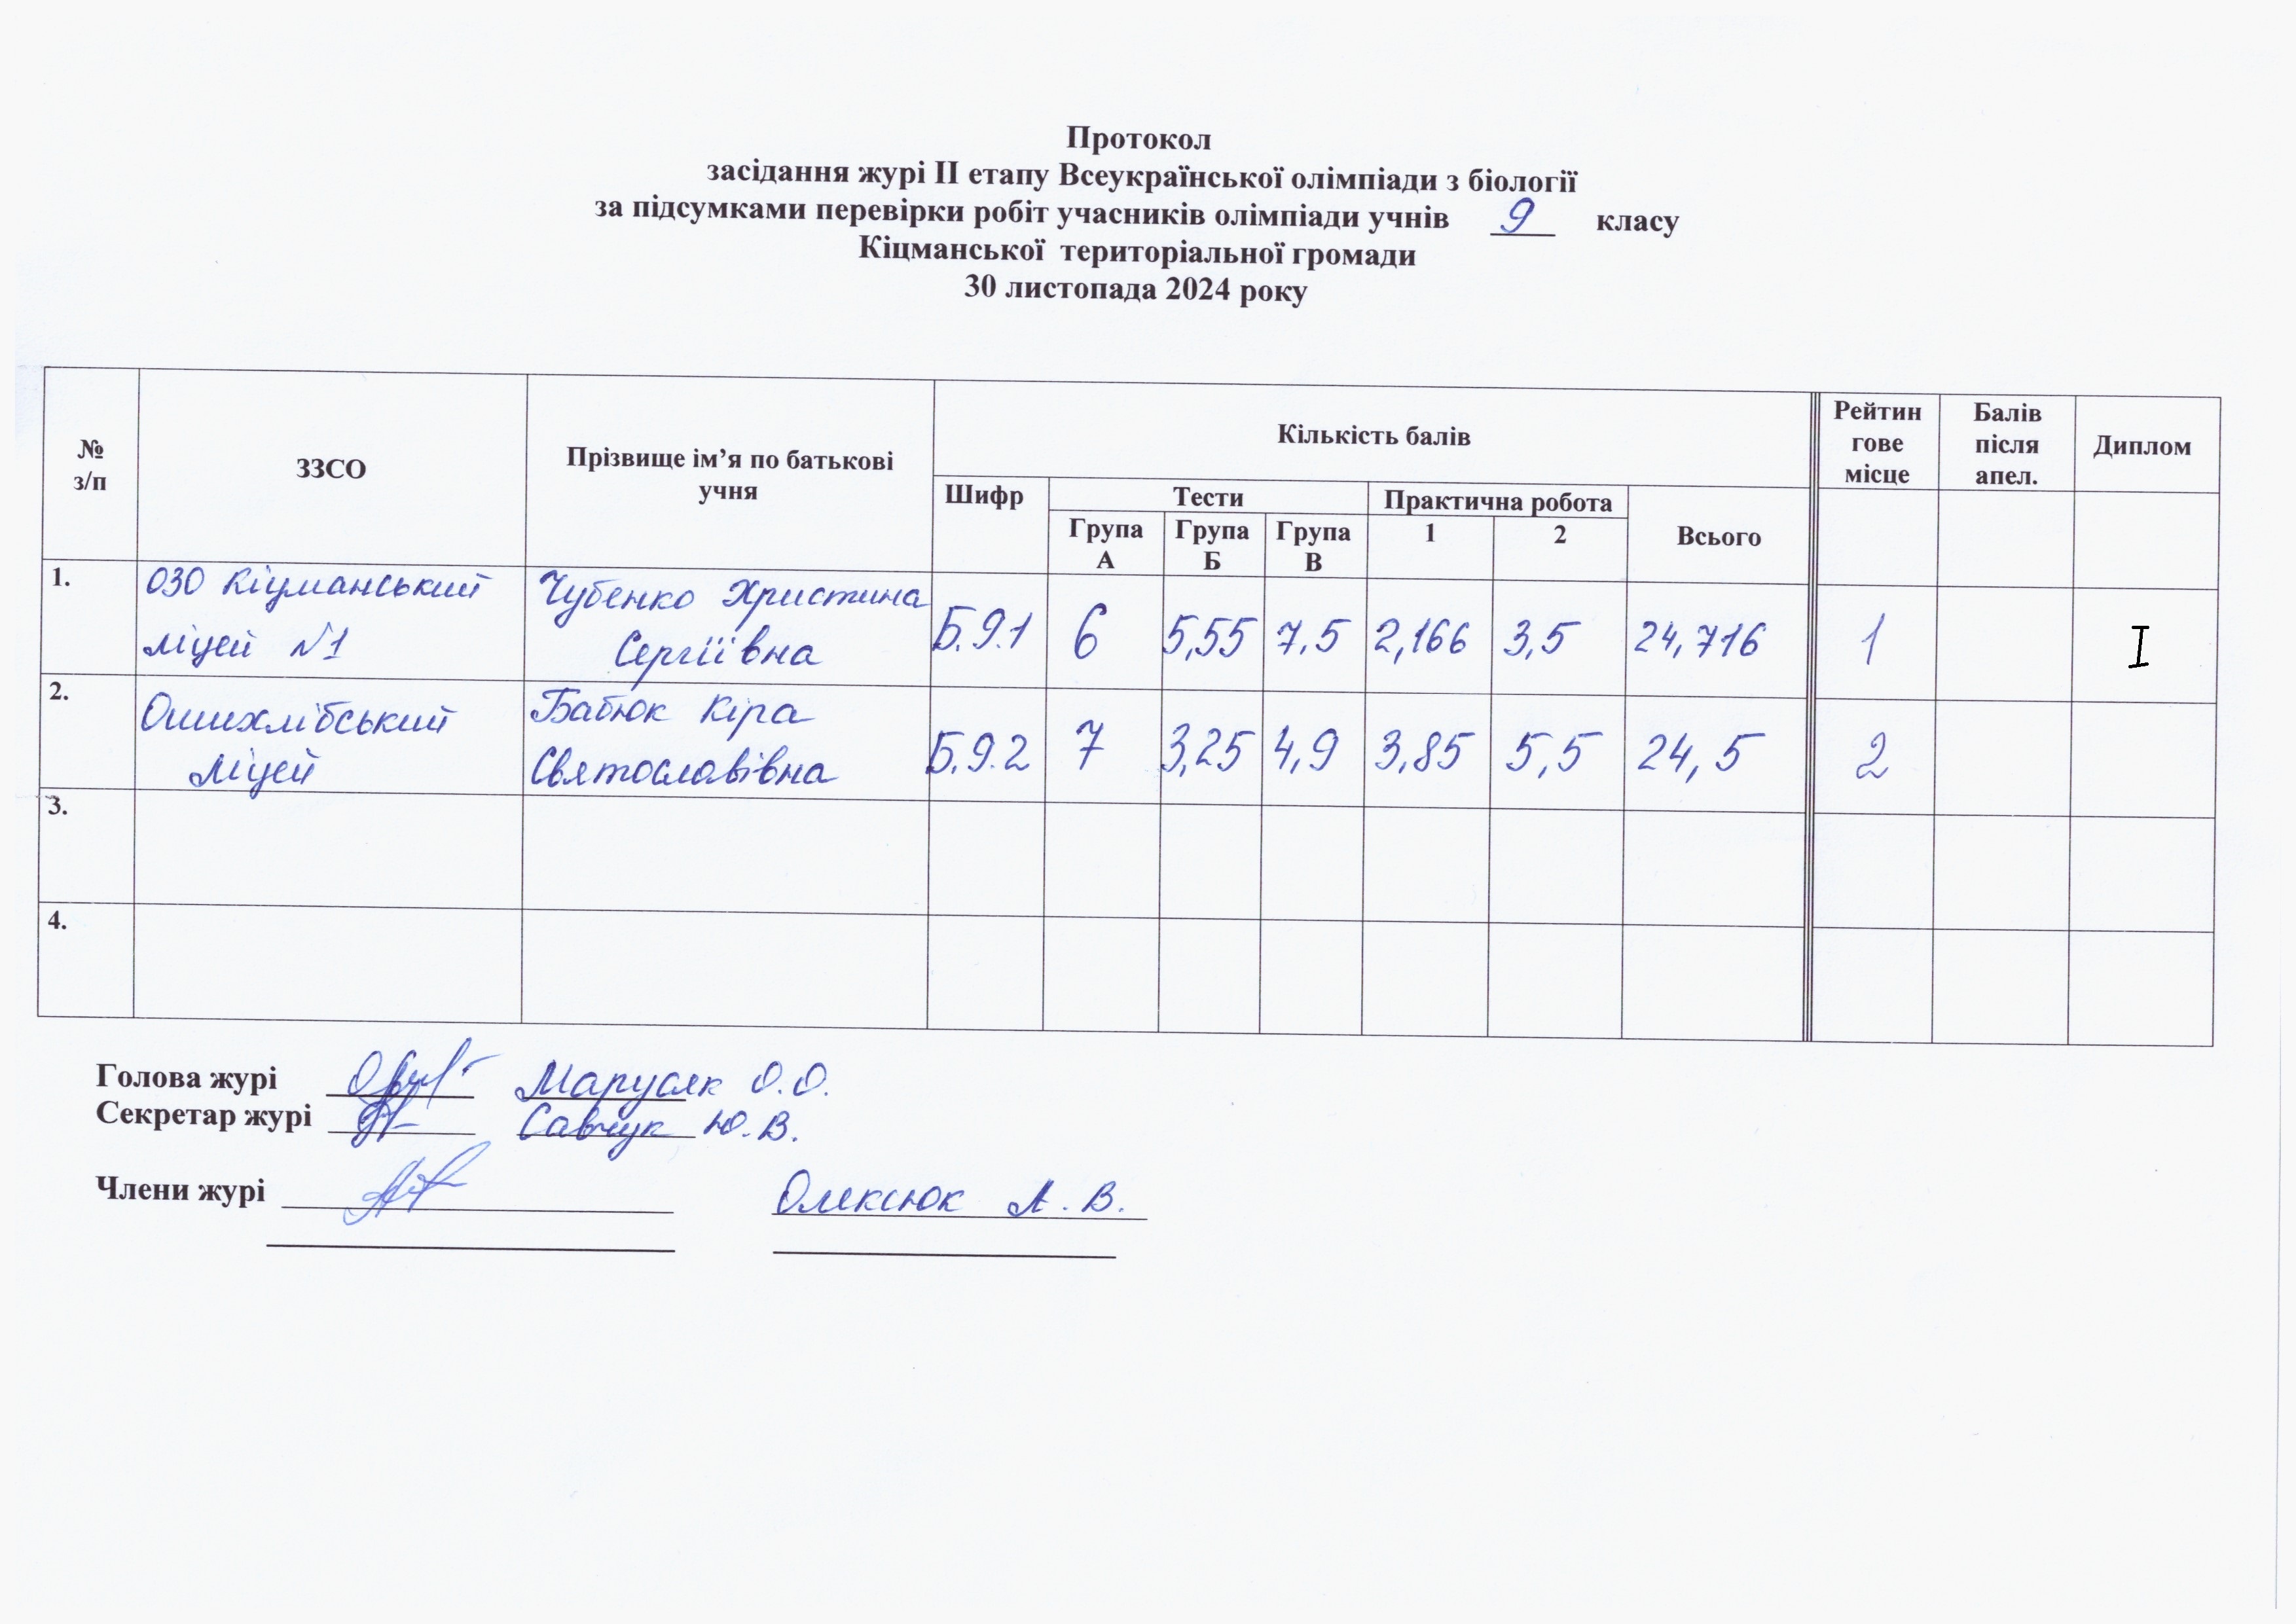 Протокол
засідання журі ІІ етапу Всеукраїнської олімпіади з біології
за підсумками перевірки робіт учасників олімпіади учнів 9 класу
Кіцманської територіальної громади
30 листопада 2024 року
№ з/п ЗЗСО Прізвище ім’я по батькові учня Кількість балів Рейтин гове місце Балів після апел. Диплом
Шифр Тести Практична робота Всього
Група А Група Б Група В 1 2
1. ОЗО Кіцманський ліцей №1 Чубенко Христина Сергіївна Б.9.1 6 5,55 7,5 2,166 3,5 24,716 1 I
2. Ошихлібський ліцей Бабюк Кіра Святославівна Б.9.2 7 3,25 4,9 3,85 5,5 24,5 2
3.
4.
Голова журі Марусяк О.О.
Секретар журі Савчук Ю.В.
Члени журі Олексюк А.В.